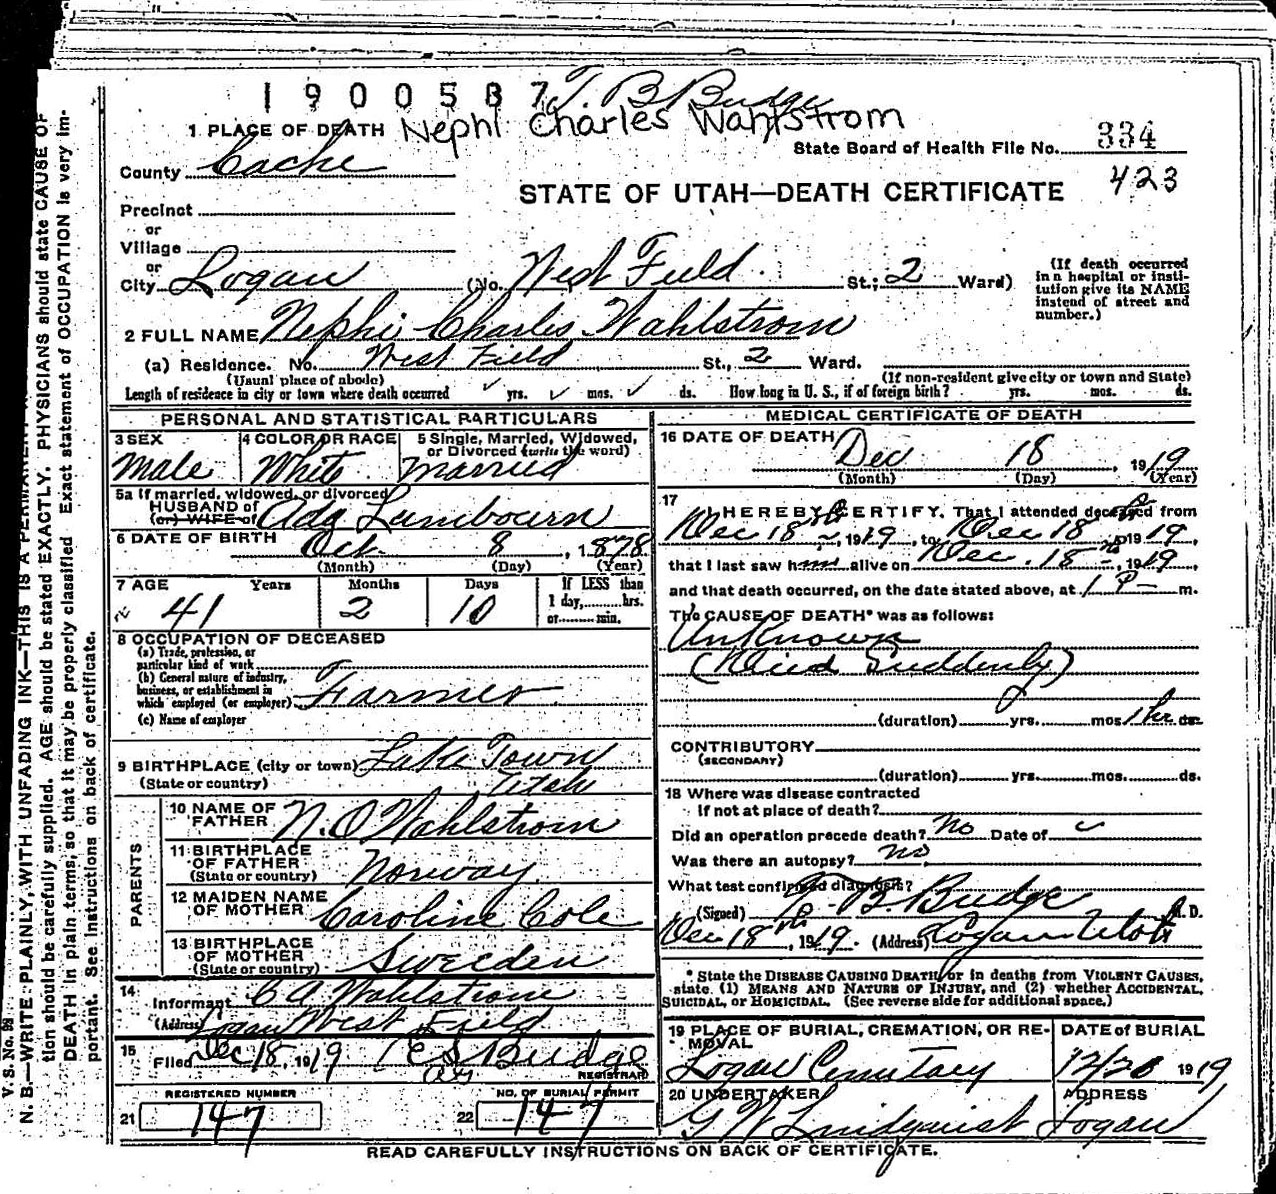 1900587 T. B. Budge
Nephi Charles Wahlstrom
1 PLACE OF DEATH
State Board of Health File No. 334
County Cache
STATE OF UTAH—DEATH CERTIFICATE 423
Precinct
or
Village
or
City Logan (No. West Field St.; 2 Ward)
(If death occurred in a hospital or institution give its NAME instead of street and number.)
2 FULL NAME Nephi Charles Wahlstrom
(a) Residence. No. West Field St., 2 Ward.
(Usual place of abode) (If non-resident give city or town and State)
Length of residence in city or town where death occurred yrs. mos. ds. How long in U. S., if of foreign birth? yrs. mos. ds.
PERSONAL AND STATISTICAL PARTICULARS
3 SEX 4 COLOR OR RACE 5 Single, Married, Widowed,
or Divorced (write the word)
Male White Married
5a If married, widowed, or divorced
HUSBAND of
(or) WIFE of Ada Lambourn
6 DATE OF BIRTH Oct. 8, 1878
(Month) (Day) (Year)
7 AGE Years Months Days If LESS than
1 day, hrs.
or min.
41 2 10
8 OCCUPATION OF DECEASED
(a) Trade, profession, or
particular kind of work
(b) General nature of industry,
business, or establishment in
which employed (or employer) Farmer
(c) Name of employer
9 BIRTHPLACE (city or town) Lake Town
(State or country) Utah
PARENTS
10 NAME OF
FATHER N. O Wahlstrom
11 BIRTHPLACE
OF FATHER
(State or country) Norway
12 MAIDEN NAME
OF MOTHER Caroline Cole
13 BIRTHPLACE
OF MOTHER
(State or country) Sweden
14
Informant C A Wahlstrom
(Address) Logan West Field
15
Filed Dec 18, 1919 E S Budge
REGISTRAR
REGISTERED NUMBER NO. OF BURIAL PERMIT
21 147 22 147
MEDICAL CERTIFICATE OF DEATH
16 DATE OF DEATH Dec 18, 1919
(Month) (Day) (Year)
17
I HEREBY CERTIFY, That I attended deceased from
Dec 18, 1919, to Dec 18, 1919,
that I last saw him alive on Dec. 18, 1919,
and that death occurred, on the date stated above, at 1 P m.
The CAUSE OF DEATH* was as follows:
Unknown
(Died Suddenly)
(duration) yrs. mos 1 hr ds.
CONTRIBUTORY
(SECONDARY)
(duration) yrs. mos. ds.
18 Where was disease contracted
if not at place of death?
Did an operation precede death? No Date of
Was there an autopsy? no
What test confirmed diagnosis?
(Signed) T. B. Budge M. D.
Dec 18th, 1919. (Address) Logan Utah
* State the DISEASE CAUSING DEATH, or in deaths from VIOLENT CAUSES,
state (1) MEANS AND NATURE OF INJURY, and (2) whether ACCIDENTAL,
SUICIDAL, or HOMICIDAL. (See reverse side for additional space.)
19 PLACE OF BURIAL, CREMATION, OR RE-
MOVAL DATE of BURIAL
Logan Cemetary 12/20 1919
20 UNDERTAKER ADDRESS
G W Lindquist Logan
READ CAREFULLY INSTRUCTIONS ON BACK OF CERTIFICATE.
V. S. No.
N. B.—WRITE PLAINLY, WITH UNFADING INK—THIS IS A PERMANENT
tion should be carefully supplied. AGE should be stated EXACTLY. PHYSICIANS should state CAUSE OF
DEATH in plain terms, so that it may be properly classified. Exact statement of OCCUPATION is very im-
portant. See instructions on back of certificate.